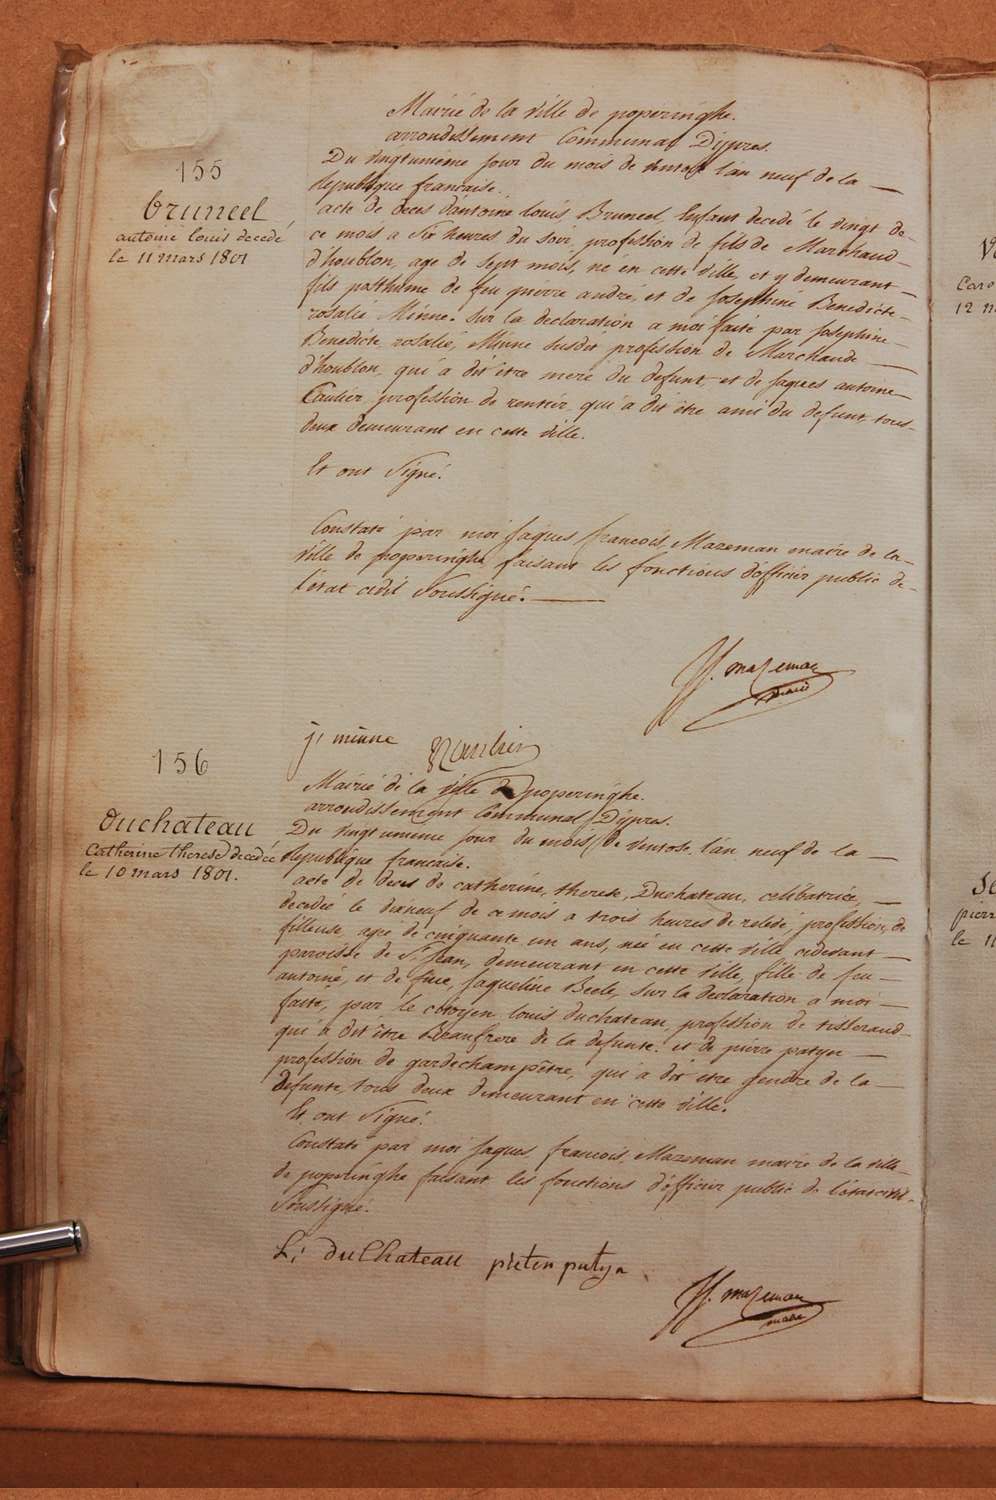 155
bruneel
antoine louis decedé
le 11 mars 1801
Mairié de la ville de poperinghe.
arrondissement Communal D'ypres.
Du vingtunième jour du mois de ventose l'an neuf de la —
Republique francaise.
acte de deces d'antoine louis Bruneel Enfant decedé le vingt de-
ce mois a six heures du soir, profession de fils de Marchand-
d'houblon, age de sept mois, né en cette ville, et y demeurant-
fils posthume de feu pierre andré, et de Josephine Benedicte-
rosalie Minne. sur la declaration a moi faite par Josephine-
Benedicte rosalie, Minne susdit profession de Marchande —
d'houblon, qui a dit être mere du defunt et de Jaques antoine-
profession de rentier, qui a dit être ami du defunt, tous-
deux demeurant en cette ville.
Et ont signé.
Constaté par moi Jaques francois Mazeman maire de la-
ville de poperinghe faisant les fonctions d'officier public de-
l'etat civil soussigné. —
JJ. mazeman
maire
j: minne
156
duchateau
Catherine therese decedée
le 10 mars 1801.
Mairié de la ville de poperinghe.
arrondissement Communal D'ypres.
Du vingtunieme jour du mois De ventose l'an neuf de la —
Republique francaise.
acte de deces de catherine, therese, Duchateau, celibatrice, —
decedée le dixneuf de ce mois a trois heures de relevé, profession, de
filleuse, age de cinquante un ans, née en cette ville cidevant —
paroisse de St. Jean, demeurant en cette ville, fille de feu —
antoine, et de feue, Jaqueline Beele, sur la declaration a moi —
faite, par, le citoyen louis duchateau, profession de tisserand-
qui a dit être Beaufrere de la defunte. et de pierre patyn —
profession de gardechampêtre, qui a dit etre gendre de la —
defunte, tous deux demeurant en cette ville.
Et ont signé.
Constaté par moi Jaques francois, Mazeman maire de la ville-
de poperinghe faisant les fonctions d'officier public de l'etat civil.
soussigné.
L: duChateau pieter patyn
JJ. mazeman
maire
12
pierr
le 11